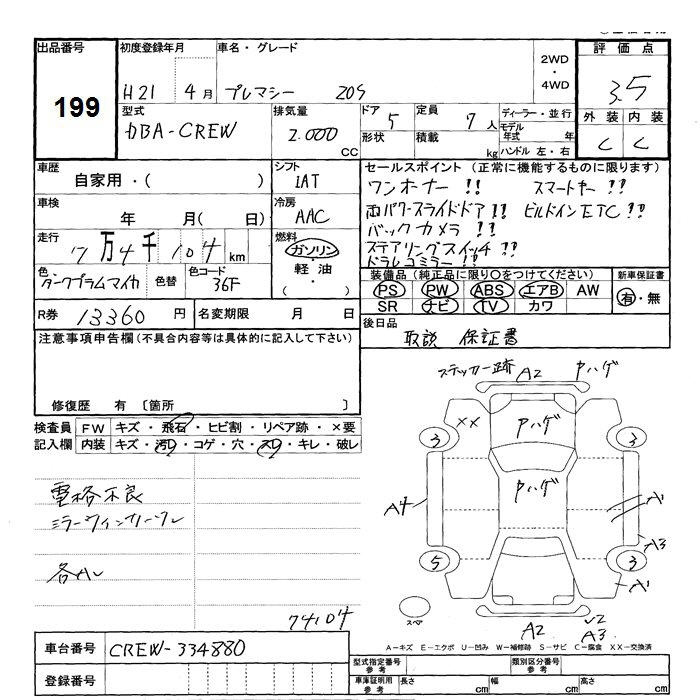 出品番号 初度登録年月 車名・グレード 2WD・4WD 評価点
199 H21 4月 プレマシー 20S 3.5
型式 排気量 ドア 定員 ディーラー・並行 外装 内装
DBA-CREW 2.000 CC 5 7人 モデル年式 年 C C
形状 積載 kg ハンドル 左・右
車歴 シフト セールスポイント (正常に機能するものに限ります)
自家用・( ) IAT ワンオーナー !! スマートキー !!
車検 冷房 両パワースライドドア !! ビルドインETC !!
年 月( 日) AAC バックカメラ !!
走行 燃料 ステアリングスイッチ !!
7万4千104km ガソリン・軽油・( ) ドラレコミラー !!
色 色替 色コード 装備品(純正品に限り○をつけてください) 新車保証書
ダークプラムマイカ 36F PS PW ABS エアB AW 有・無
SR ナビ TV カワ
R券 13360円 名変期限 月 日 後日品
取説 保証書
注意事項申告欄(不具合内容等は具体的に記入して下さい)
修復歴 有 〔箇所 〕
ステッカー跡 A2 Pハゲ
検査員 FW キズ・飛石・ヒビ割・リペア跡・×要
記入欄 内装 キズ・汚レ・コゲ・穴・スレ・キレ・破レ
×× Pハゲ
3 3
Pハゲ
電格不良
ミラーウィンカーワレ
A4 A1
A3
5 3
各AL A1
74104 スペア
A2 A3
A-キズ E-エクボ U-凹み W-補修跡 S-サビ C-腐食 XX-交換済
車台番号 CREW-334880
型式指定番号 参考 類別区分番号 参考
登録番号 車庫証明用 参考 長さ cm 幅 cm 高さ cm